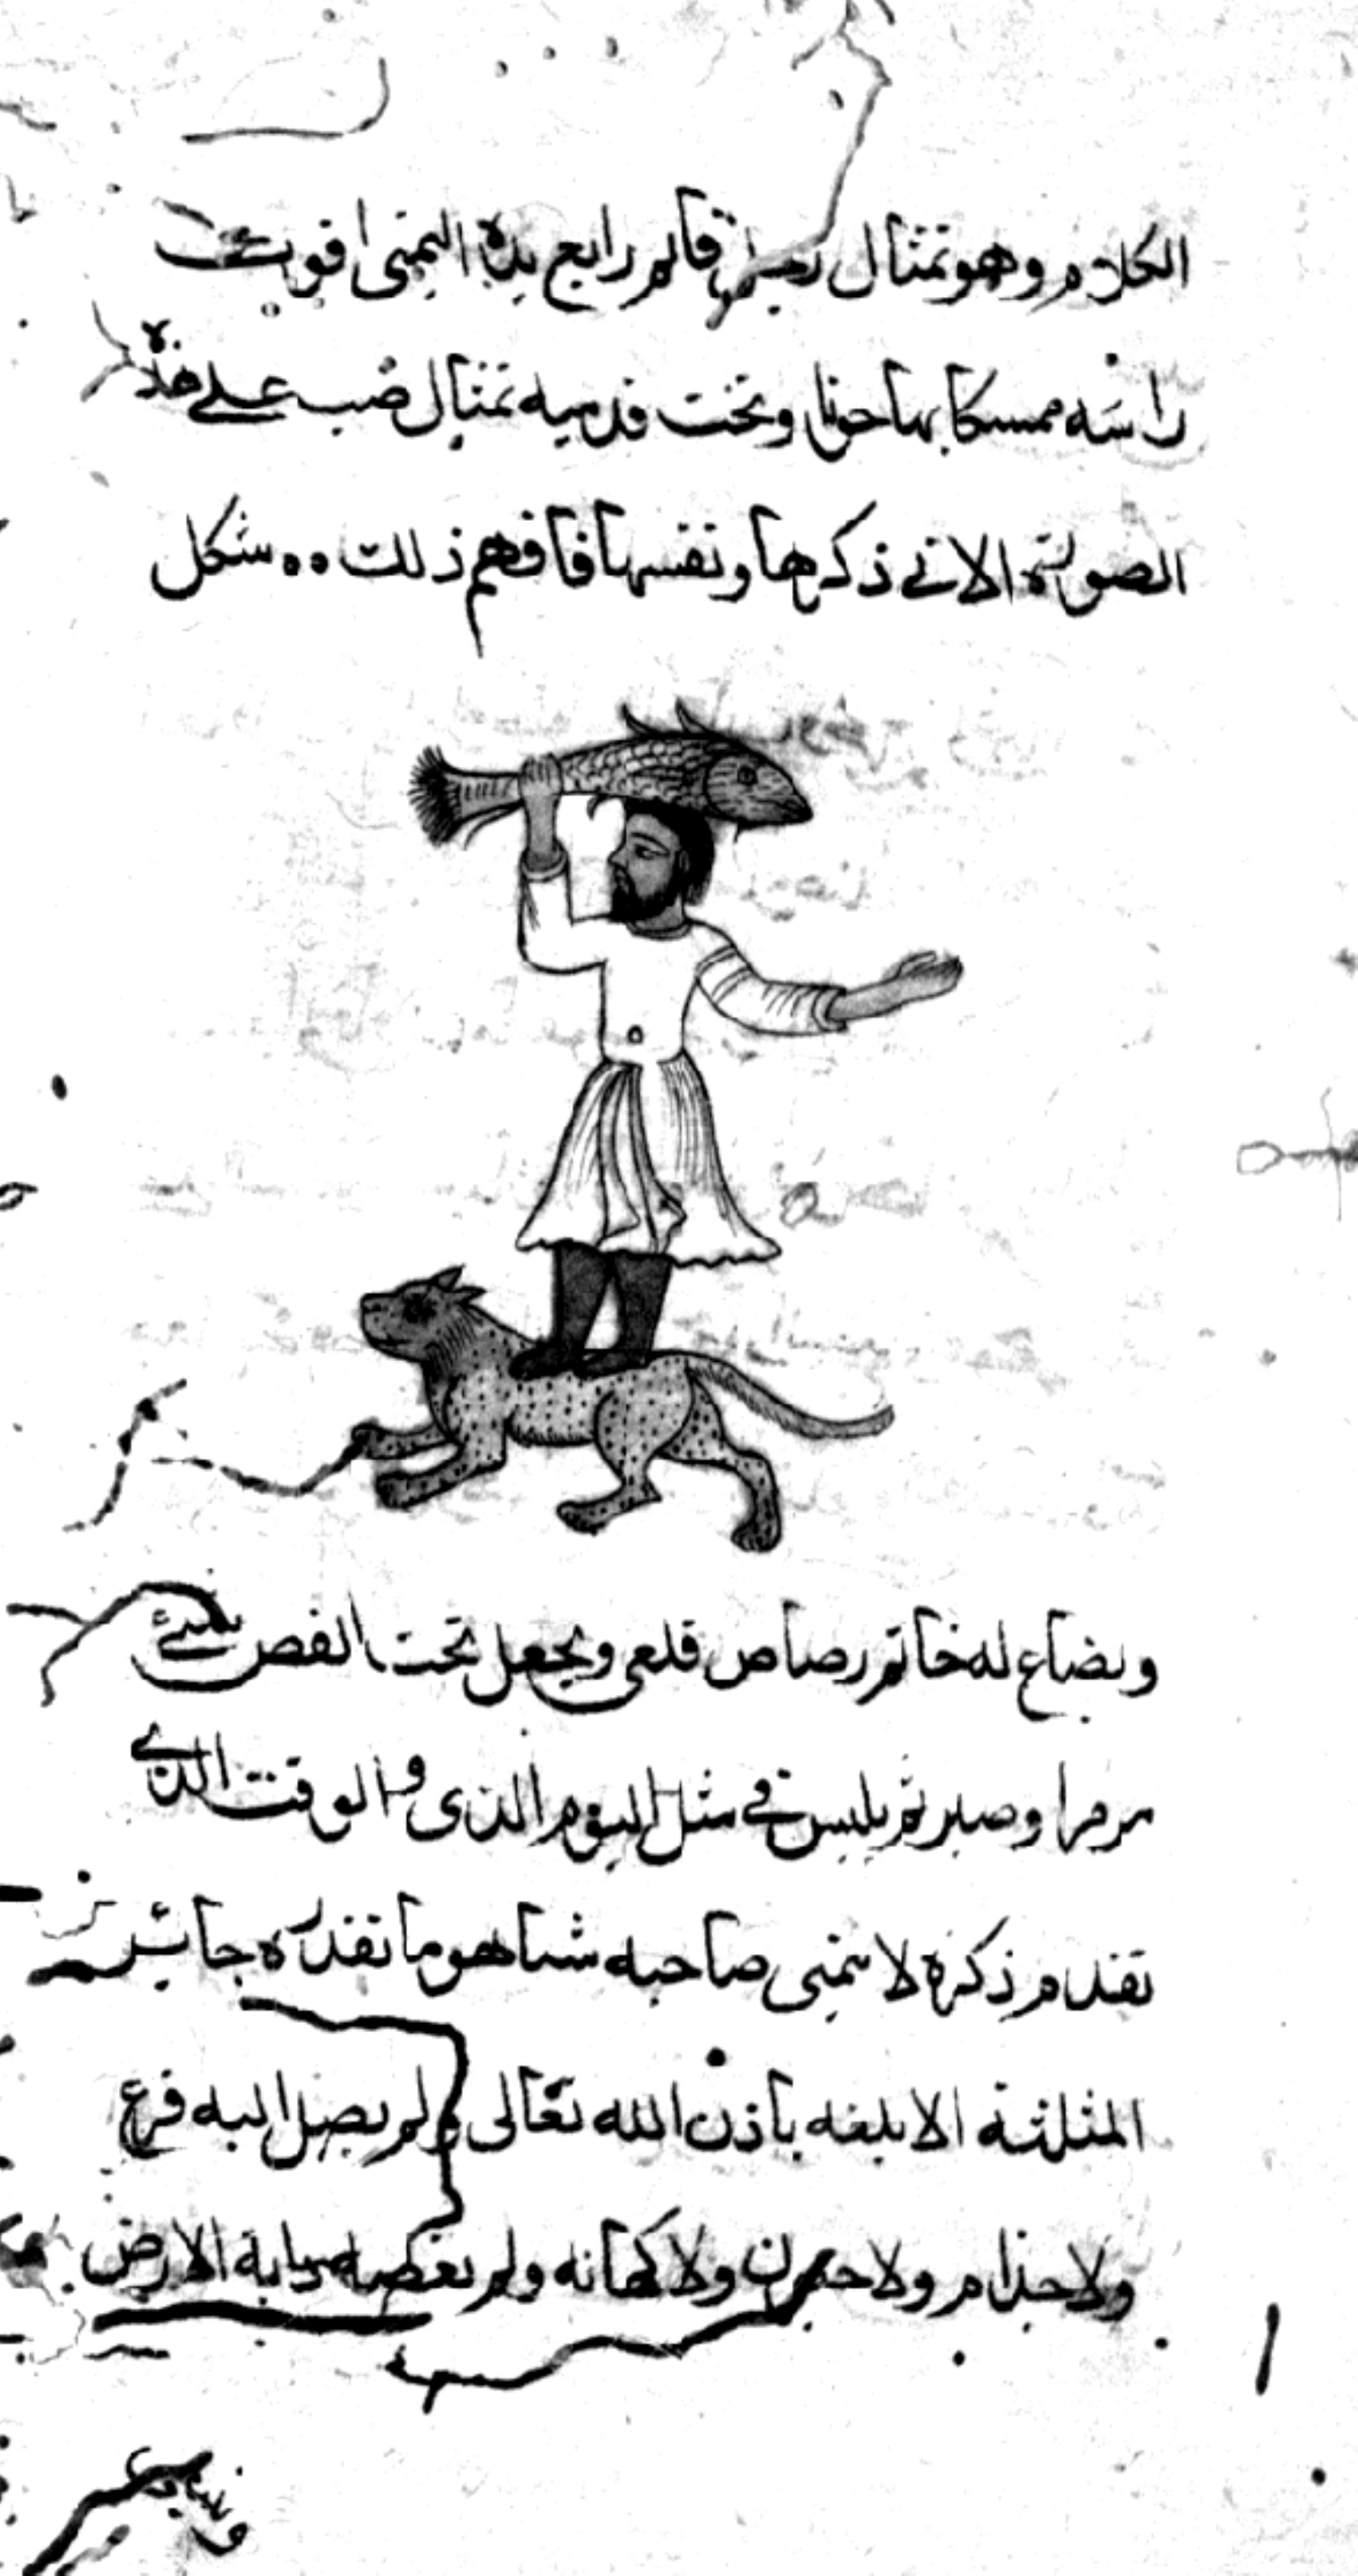 الكلام وهو تمثال رجل قائم رابع يده اليمنى افويت
راسه ممسكا بها حوتا وتحت قدميه تمثال ضب على هذه
الصورة الاتى ذكرها ونفسها فافهم ذلك شكل
وبضاع له خاتم رصاص قلعى ويجعل تحت الفص شئ
مر مرا وصبر ثم يلبس فى مثل اليوم الذى و الوقت الذى
تقدم ذكره لا يتمنى صاحبه شيا هو ما تقدره جاير
المثلثة الا بلغه باذن الله تعالى ولم يصل اليه فزع
ولا جذام ولا ولا كهانه ولم دابة الارض